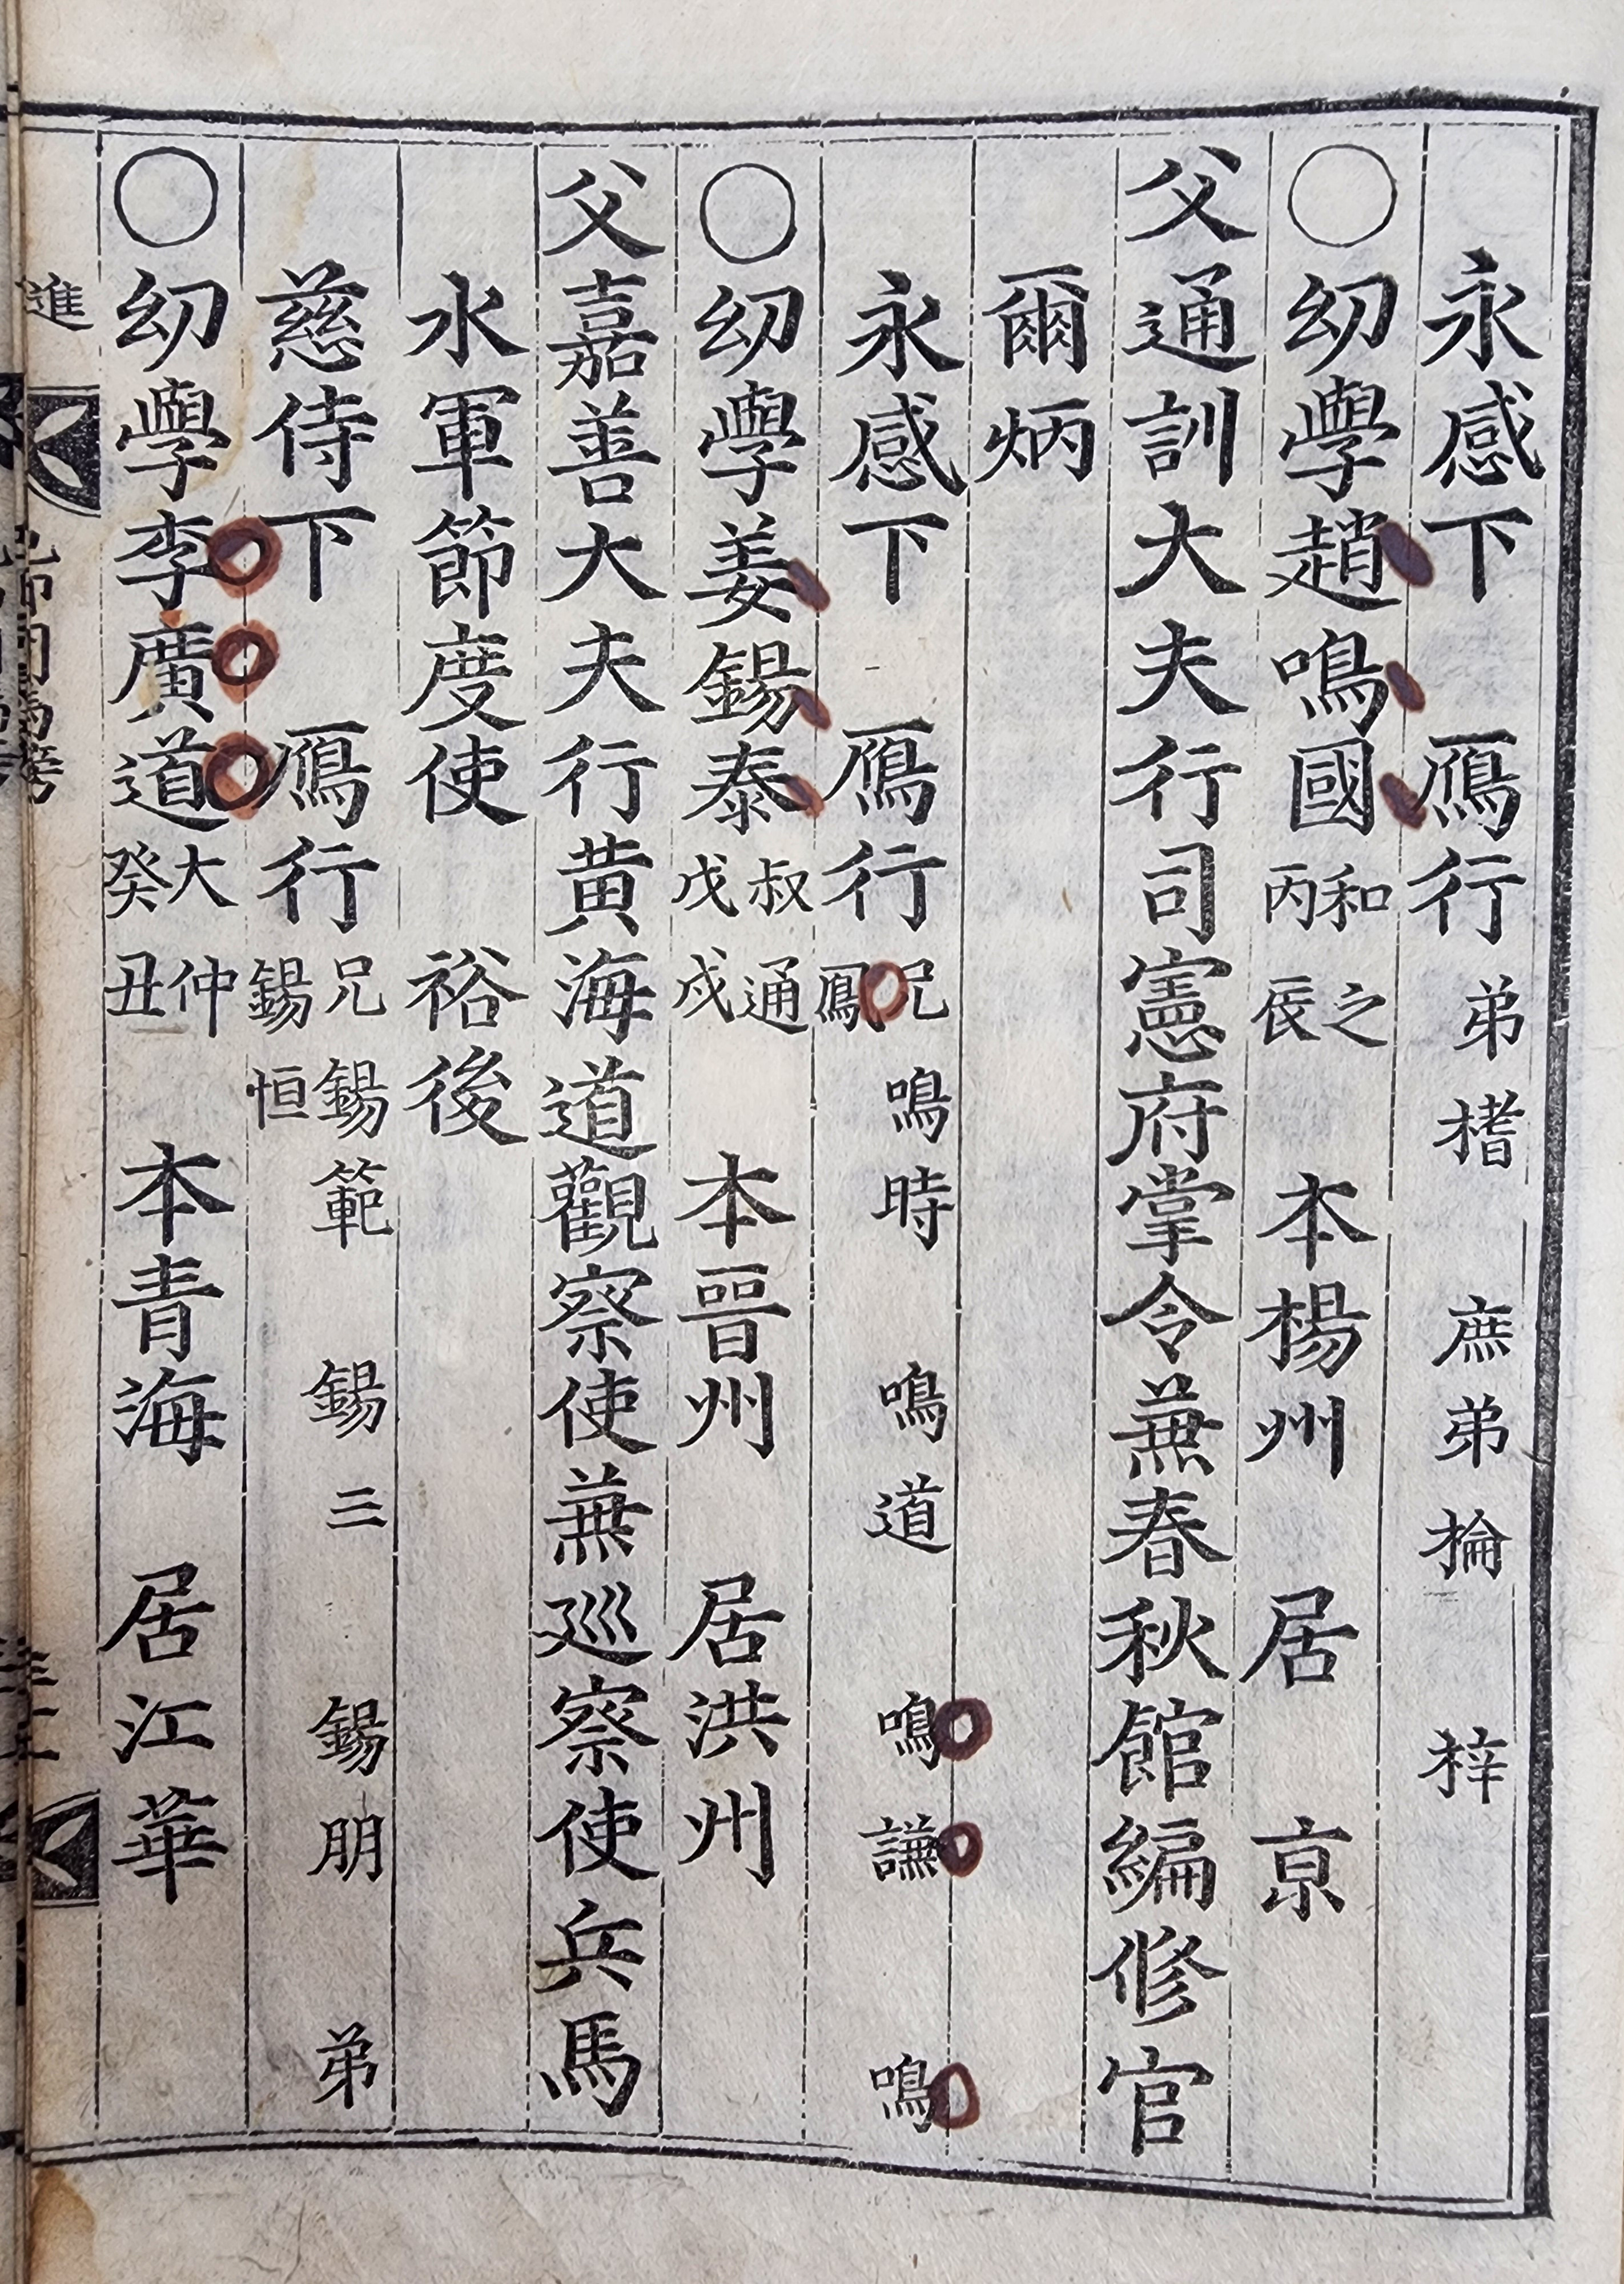 永感下 鴈行 弟榰 庶弟掄 梓
○幼學趙鳴國 和之 丙辰 本楊州 居京
父通訓大夫行司憲府掌令兼春秋館編修官
爾炳
永感下 鴈行 兄鳴時 鳴道 鳴謙 鳴鳳
○幼學姜錫泰 叔通 戊戌 本晉州 居洪州
父嘉善大夫行黃海道觀察使兼巡察使兵馬
水軍節度使 裕後
慈侍下 鴈行 兄錫範 錫三 錫朋 弟錫恒
○幼學李廣道 大仲 癸丑 本青海 居江華
進